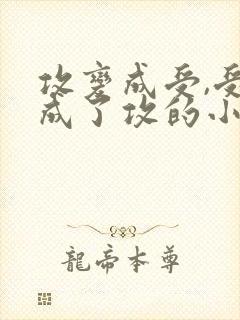 攻变成受,受
成了攻的小
龍帝本尊